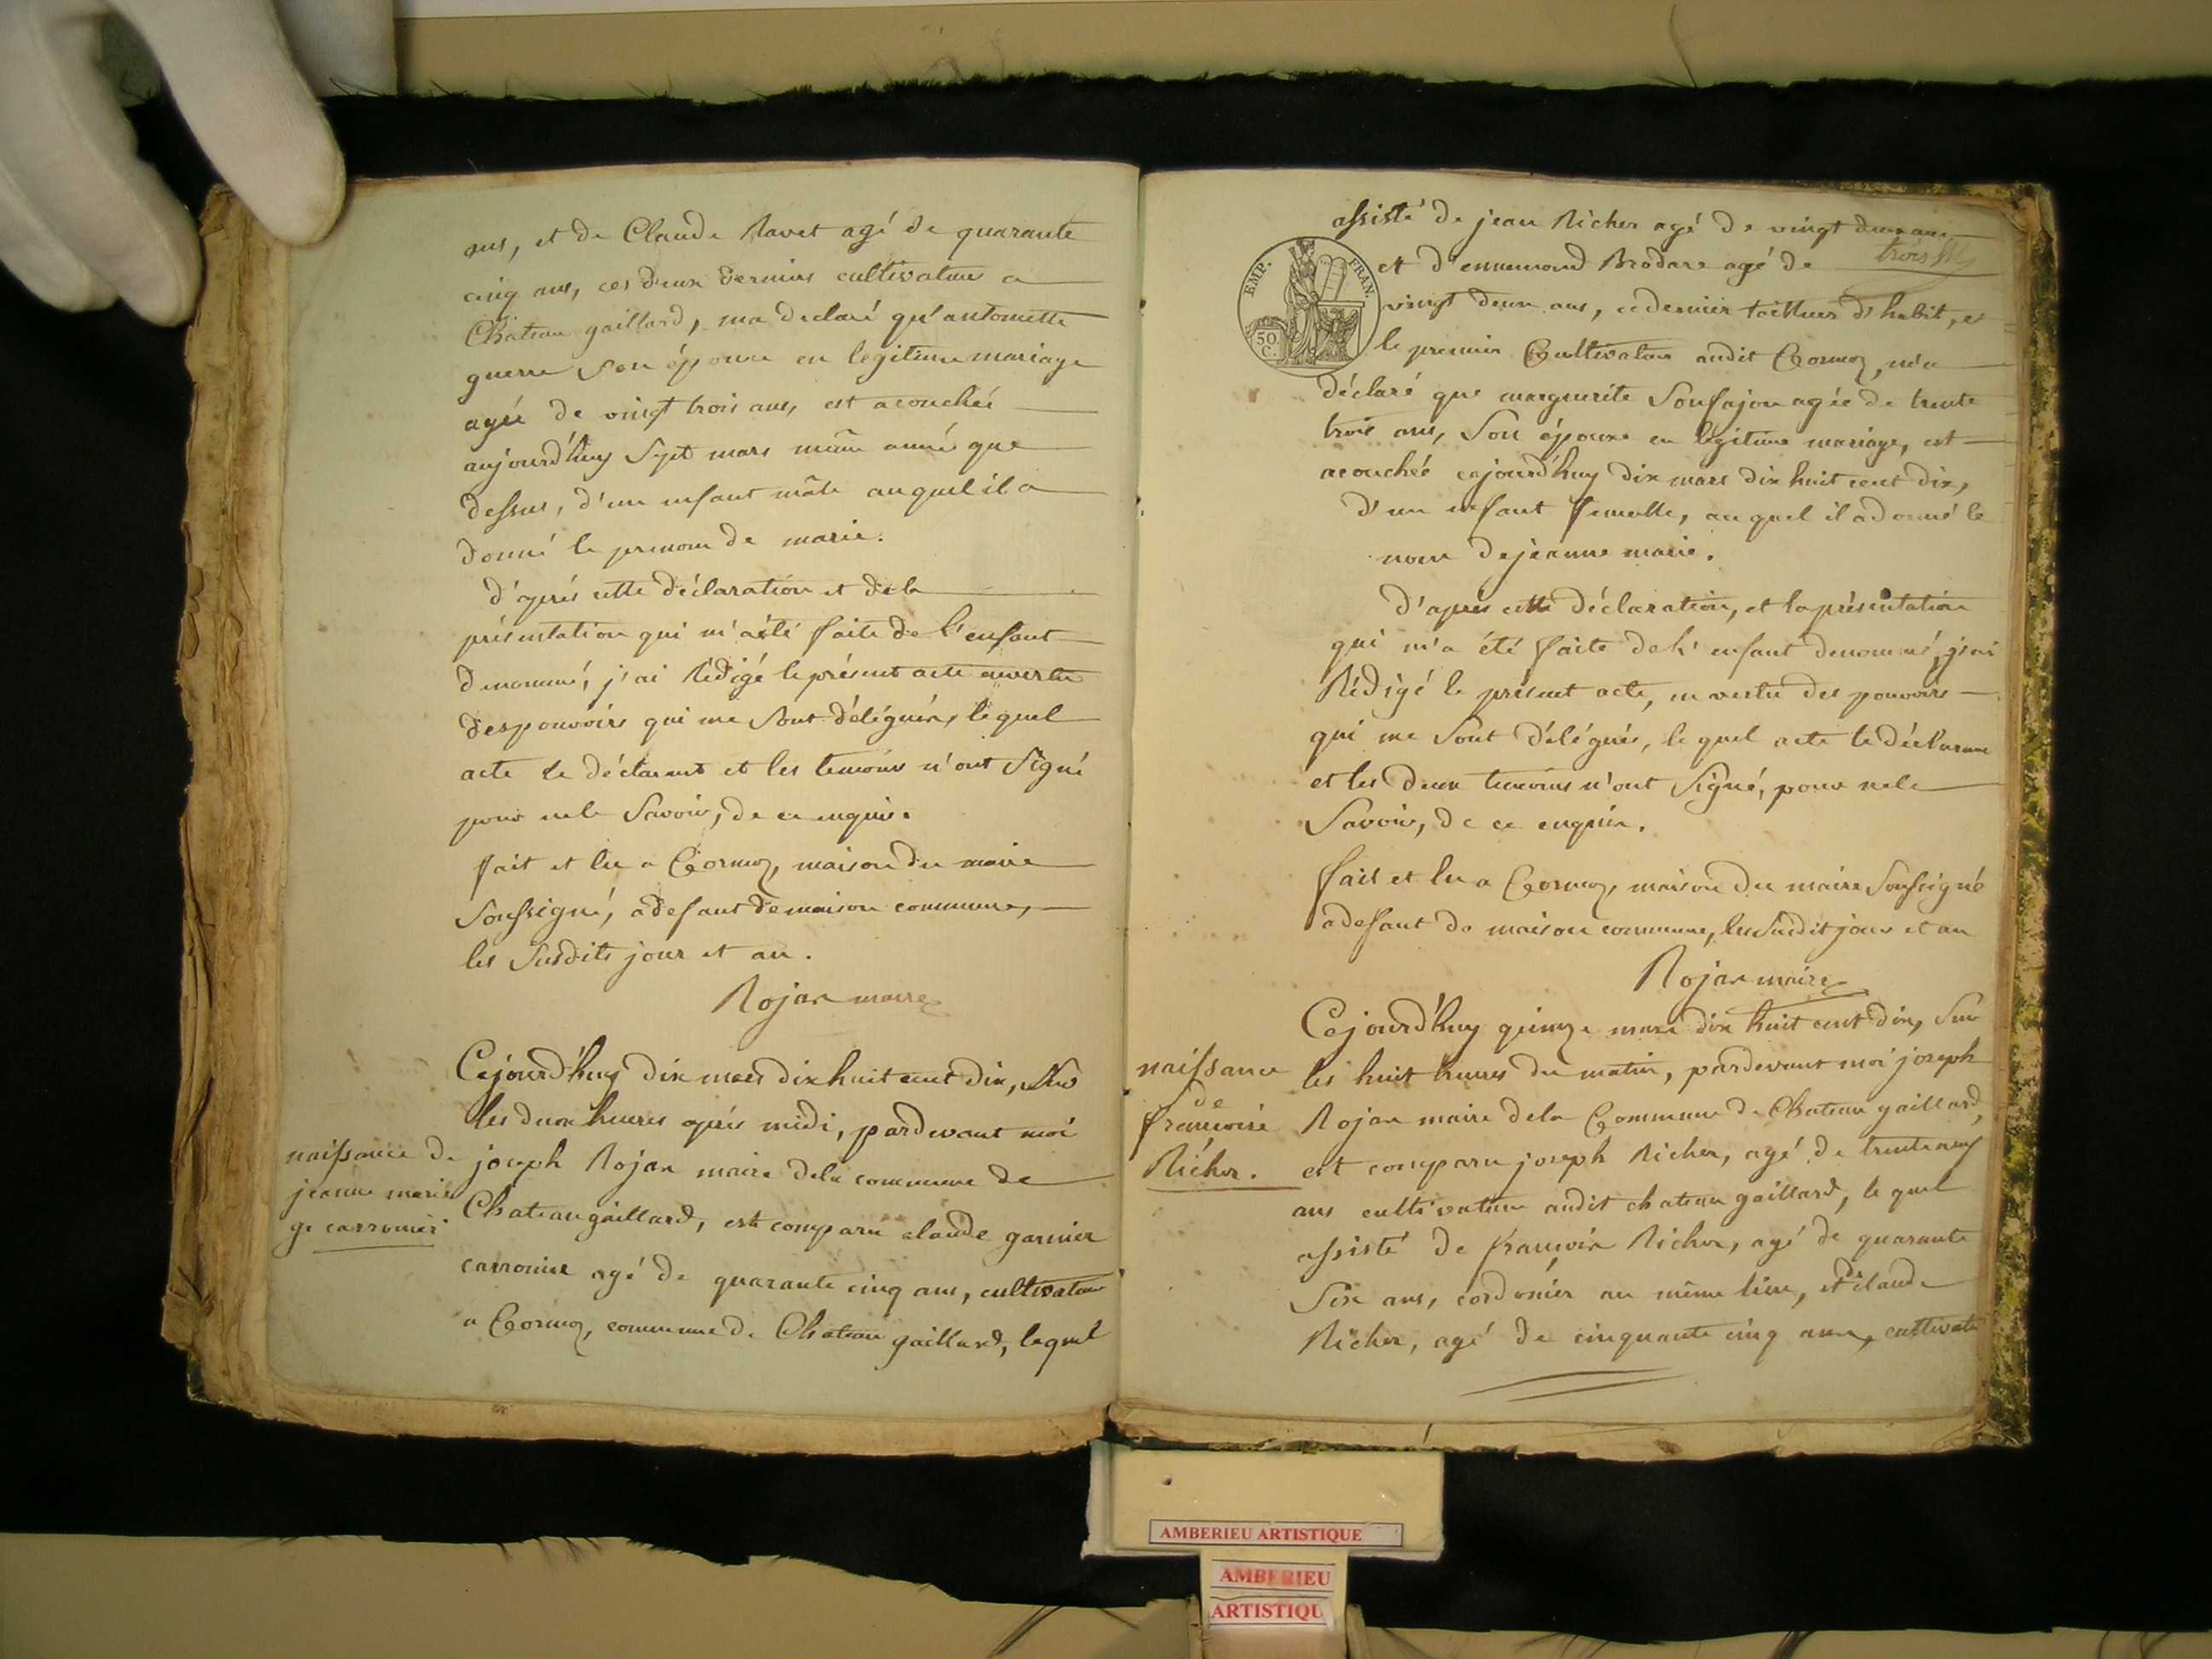 ans, et de Claude Ravet agé de quarante
cinq ans, ces deux derniers cultivateurs a
Chateau gaillard, m'a declaré qu'antoinette
guerre son épouse en legitime mariage
agée de vingt trois ans, est acouchée
aujourd'huy Sept mars même année que
dessus, d'un enfant mâle auquel il a
donné le prenom de marie.
d'aprés cette déclaration et de la
présentation qui m'a été faite de l'enfant
denommé, j'ai Rédigé le présent acte en vertu
des pouvoirs qui me sont délégués, le quel
acte le déclarant et les temoins n'ont Signé
pour ne le Savoir, de ce enquis.
fait et lu a Cormoz, maison du maire
Soussigné, a defaut de maison commune,
les Susdits jour et an.
Rojan maire
naissance de
jeanne marie
g. carronier
Cejourd'huy dix mars dix huit cent dix, sur
les deux heures aprés midi, pardevant moi
joseph Rojan maire de la commune de
Chateaugaillard, est comparu claude garnier
carronier agé de quarante cinq ans, cultivateur
a Cormoz, commune de Chateau gaillard, lequel
assisté de jean Richer agé de vingt deux ans
trois
EMP. FRAN.
50 C.
et d'ennemond Brodare agé de
vingt deux ans, ce dernier tailleur d'habit, et
le premier Cultivateur audit Cormoz, m'a
déclaré que marguerite agée de trente
trois ans, Son épouse en légitime mariage, est
acouchée cejourd'huy dix mars dix huit cent dix,
d'un enfant femelle, au quel il a donné le
nom de jeanne marie.
d'apres cette déclaration, et la présentation
qui m'a été faite de l'enfant denommé, j'ai
Rédigé le présent acte, en vertu des pouvoirs
qui me Sont délégués, le quel acte le déclarant
et les deux temoins n'ont Signé, pour ne le
Savoir, de ce enquis.
fait et lu a Cormoz, maison du maire Soussigné
a defaut de maison commune, les Susdit jour et an
Rojan maire
naissance
de
françoise
Richer.
Cejourd'huy quinze mars dix huit cent dix, Sur
les huit heures du matin, pardevant moi joseph
Rojan maire de la Commune de Chateau gaillard,
est comparu joseph Richer, agé de trente neuf
ans cultivateur audit chateau gaillard, le quel
assisté de françois Richer, agé de quarante
Six ans, cordonier au même lieu, et de claude
Richer, agé de cinquante cinq ans, cultivate
AMBERIEU ARTISTIQUE
AMBERIEU
ARTISTIQU